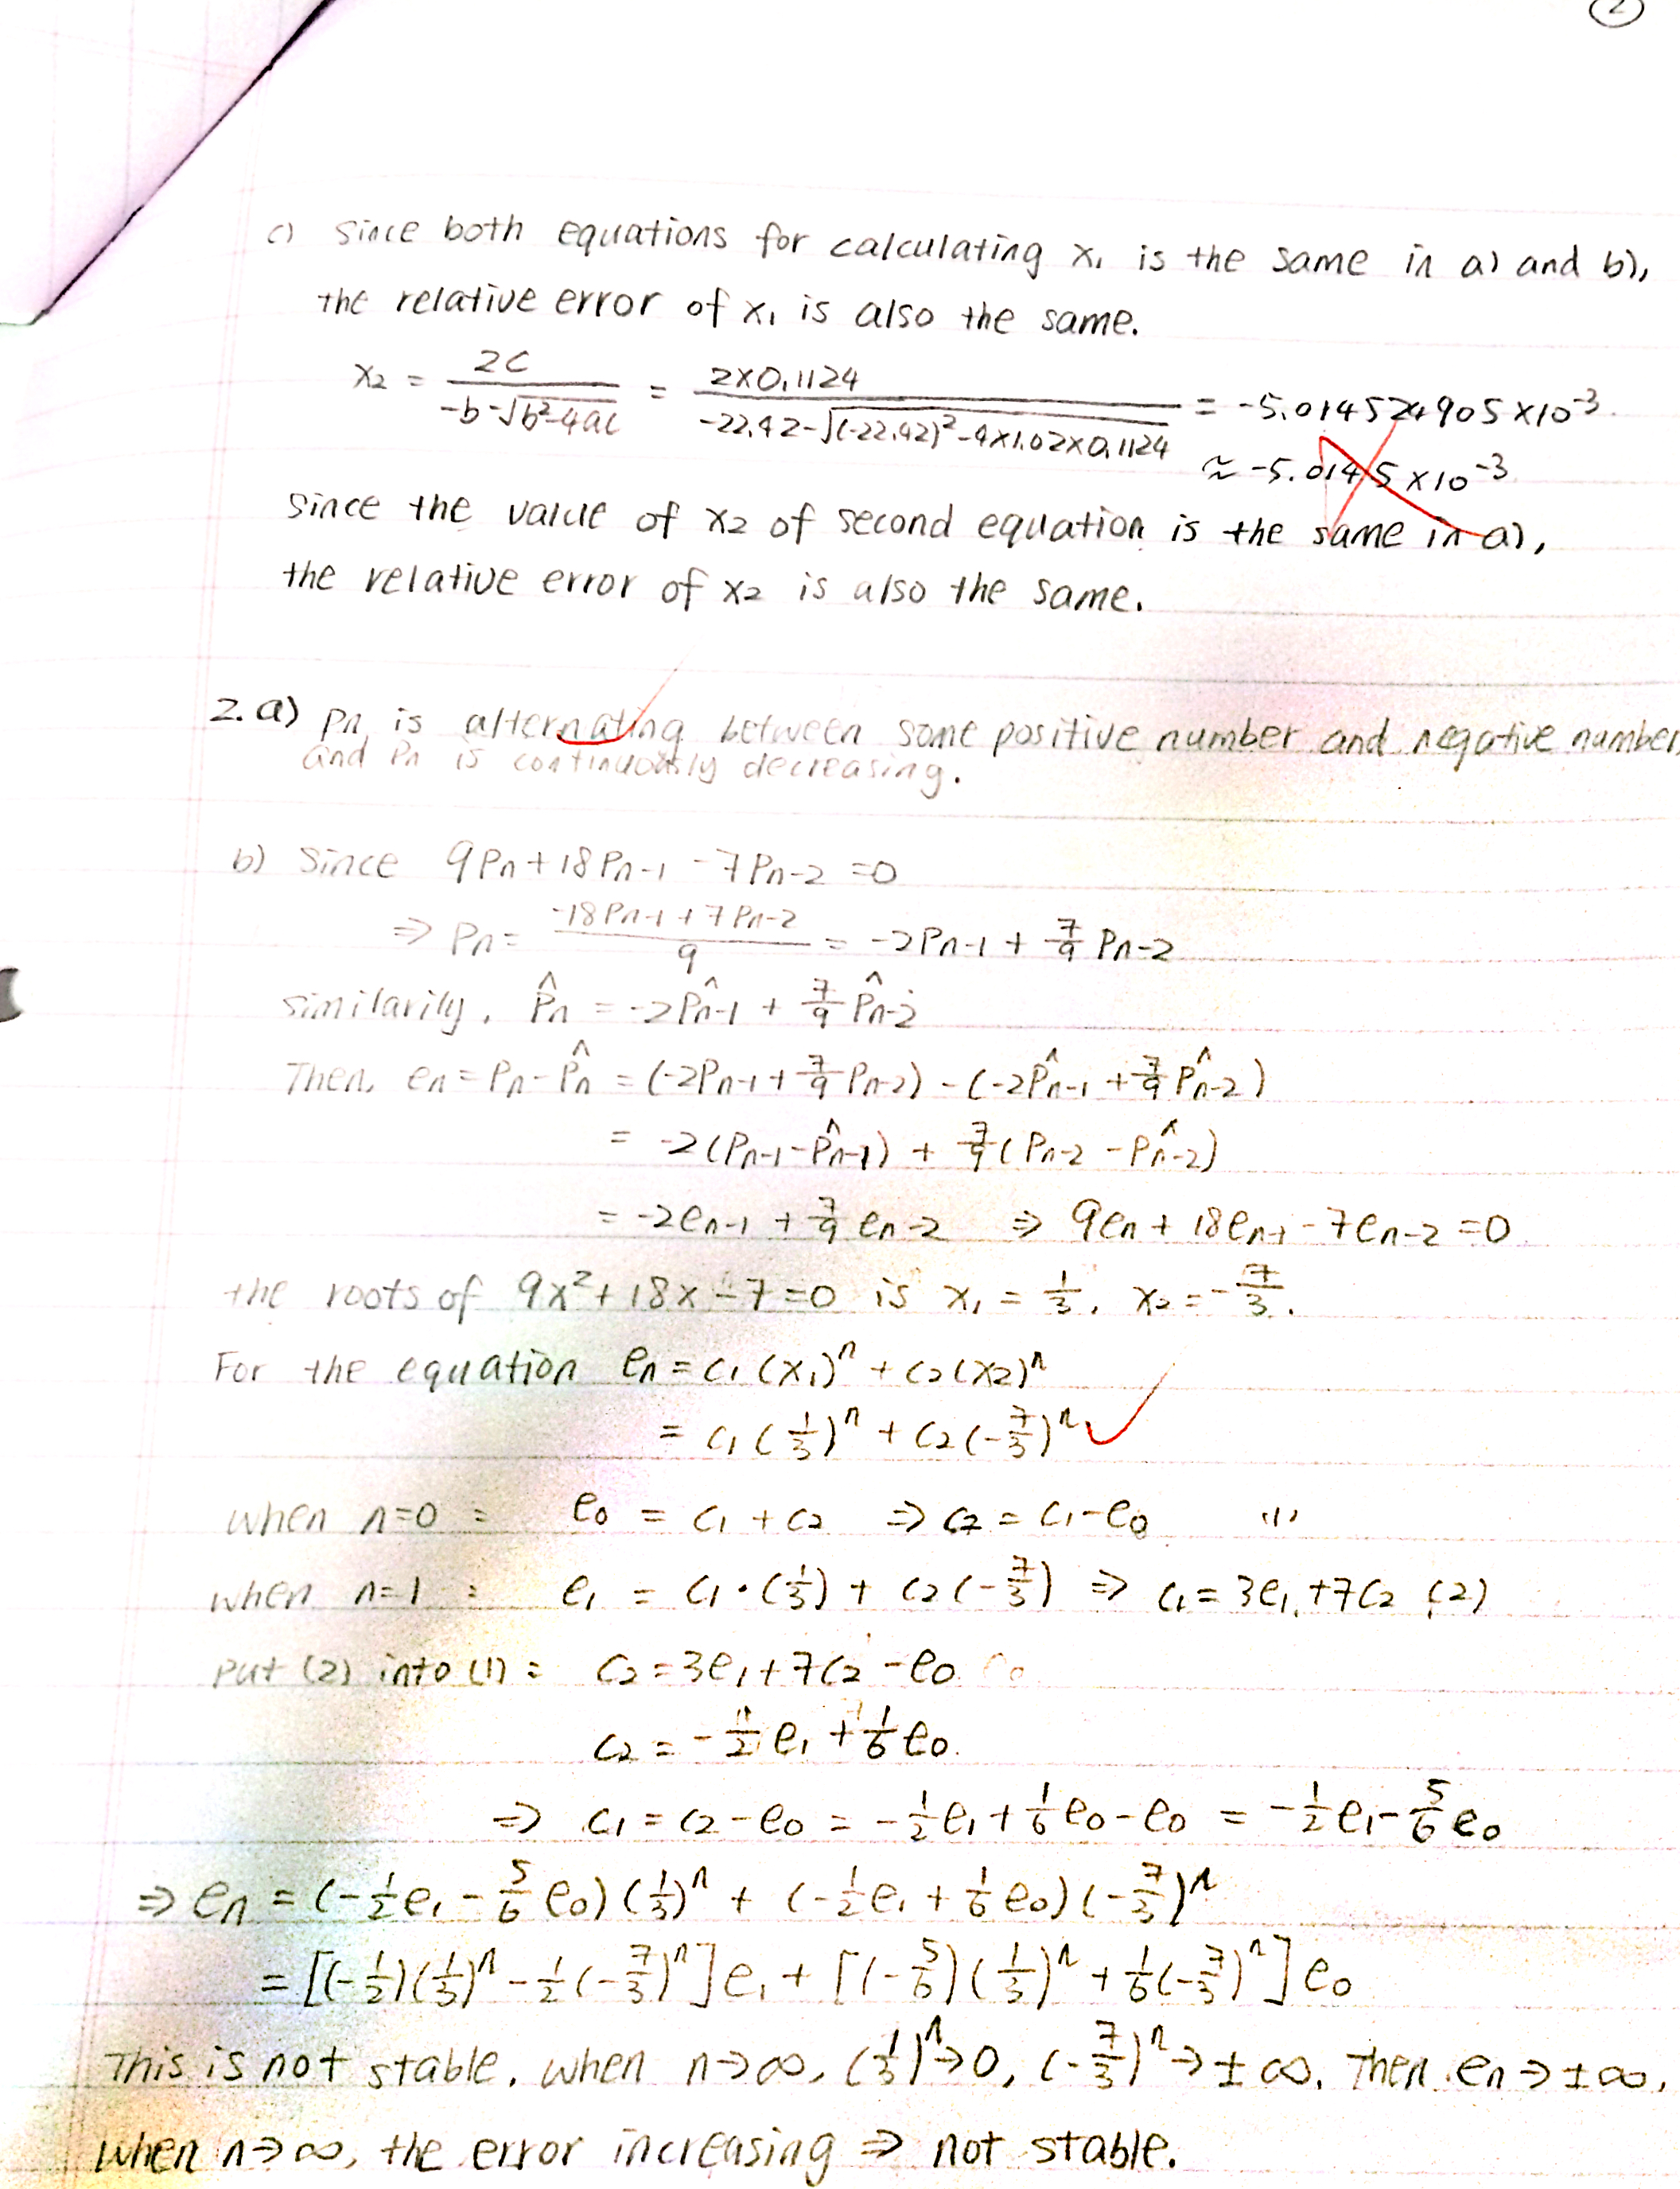 2
c) Since both equations for calculating x₁ is the same in a) and b),
the relative error of x₁ is also the same.
x₂ = 2C / (-b-√(b²-4ac)) = 2×0.1124 / (-22.42-√((-22.42)²-4×1.02×0.1124)) = -5.014524905×10⁻³
≈ -5.0145×10⁻³
Since the value of x₂ of second equation is the same in a),
the relative error of x₂ is also the same.
2. a) Pn is alternating between some positive number and negative number,
and Pn is continuously decreasing.
b) Since 9Pn + 18Pn-1 - 7Pn-2 = 0
⇒ Pn = (-18Pn-1 + 7Pn-2) / 9 = -2Pn-1 + 7/9 Pn-2
similarily, P̂n = -2P̂n-1 + 7/9 P̂n-2
Then, en = Pn - P̂n = (-2Pn-1 + 7/9 Pn-2) - (-2P̂n-1 + 7/9 P̂n-2)
= -2(Pn-1 - P̂n-1) + 7/9 (Pn-2 - P̂n-2)
= -2en-1 + 7/9 en-2 ⇒ 9en + 18en-1 - 7en-2 = 0
the roots of 9x² + 18x - 7 = 0 is x₁ = 1/3, x₂ = -7/3.
For the equation en = c₁(x₁)ⁿ + c₂(x₂)ⁿ
= c₁(1/3)ⁿ + c₂(-7/3)ⁿ
when n=0 : e₀ = c₁ + c₂ ⇒ c₂ = c₁ - e₀ (1)
when n=1 : e₁ = c₁·(1/3) + c₂(-7/3) ⇒ c₁ = 3e₁ + 7c₂ (2)
put (2) into (1) : c₂ = 3e₁ + 7c₂ - e₀
c₂ = -1/2 e₁ + 1/6 e₀.
⇒ c₁ = c₂ - e₀ = -1/2 e₁ + 1/6 e₀ - e₀ = -1/2 e₁ - 5/6 e₀
⇒ en = (-1/2 e₁ - 5/6 e₀)(1/3)ⁿ + (-1/2 e₁ + 1/6 e₀)(-7/3)ⁿ
= [(-1/2)(1/3)ⁿ - 1/2(-7/3)ⁿ]e₁ + [(-5/6)(1/3)ⁿ + 1/6(-7/3)ⁿ]e₀
This is not stable. when n→∞, (1/3)ⁿ→0, (-7/3)ⁿ→±∞. Then en→±∞.
when n→∞, the error increasing ⇒ not stable.